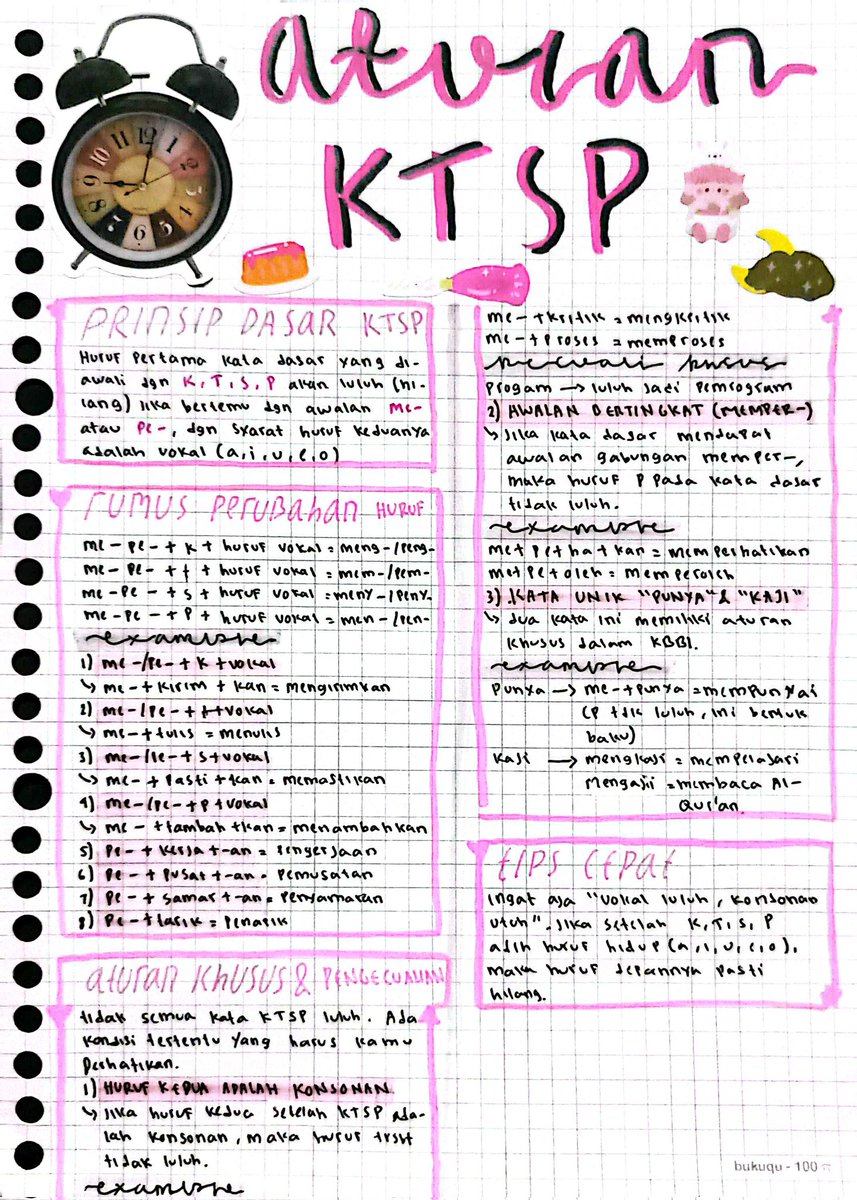 aturan
KTSP
PRINSIP DASAR KTSP
Huruf pertama kata dasar yang di-
awali dgn K, T, S, P akan luluh (hi-
lang) jika bertemu dgn awalan Me-
atau Pe-, dgn syarat huruf keduanya
adalah vokal (a,i,u,e,o)
rumus perubahan HURUF
me-pe-+ k + huruf vokal = meng-/peng-
me-pe-+ t + huruf vokal = mem-/pem-
me-pe-+ s + huruf vokal = meny-/peny-
me-pe-+ p + huruf vokal = men-/pen-
example
1) me-/pe-+ k + vokal
↳ me-+kirim+kan = mengirimkan
2) me-/pe-+ t+vokal
↳ me-+tulis = menulis
3) me-/pe-+ s+vokal
↳ me-+pasti+kan = memastikan
4) me-/pe-+p+vokal
↳ me-+tambah+kan = menambahkan
5) pe-+kerja+-an = pengerjaan
6) pe-+pusat+-an = pemusatan
7) pe-+samar+-an = penyamaran
8) pe-+tarik = penarik
aturan khusus & PENGECUALIAN
tidak semua kata KTSP luluh. Ada
kondisi tertentu yang harus kamu
perhatikan.
1) HURUF KEDUA ADALAH KONSONAN
↳ jika huruf kedua setelah KTSP ada-
lah konsonan, maka huruf trsbt
tidak luluh.
example
me-+kritik = mengkritik
me-+proses = memproses
kecuali khusus
Progam → luluh jadi pemrogram
2) AWALAN BERTINGKAT (MEMPER-)
↳ jika kata dasar mendapat
awalan gabungan memper-,
maka huruf P pada kata dasar
tidak luluh.
example
me+perhatikan = memperhatikan
me+peroleh = memperoleh
3) KATA UNIK "PUNYA" & "KAJI"
↳ dua kata ini memiliki aturan
khusus dalam KBBI.
example
Punya → me-+punya = mempunyai
(p tdk luluh, ini bentuk
baku)
Kaji → mengkaji = mempelajari
Mengaji = membaca Al-
Qur'an.
tips cepat
ingat aja "vokal luluh, konsonan
utuh". jika setelah K, T, S, P
adlh huruf hidup (a,i,u,e,o),
maka huruf depannya pasti
hilang.
bukuqu - 100